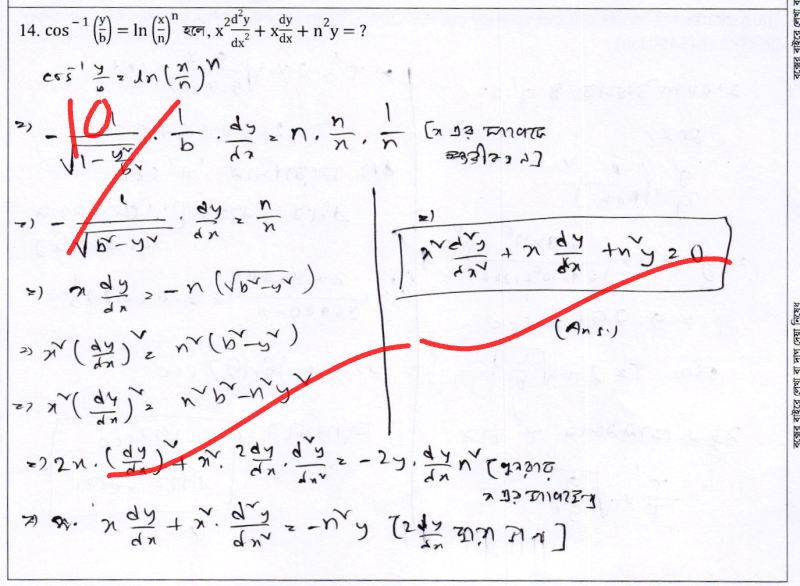 14. cos⁻¹(y/b) = ln(x/n)ⁿ হলে, x² d²y/dx² + x dy/dx + n²y = ?
cos⁻¹ y/b = ln(x/n)ⁿ
10
⇒) - 1/√(1 - y²/b²) · 1/b · dy/dx = n · n/x · 1/n [x এর সাপেক্ষে
⇒) - 1/√(b² - y²) · dy/dx = n/x
⇒) x dy/dx = - n (√(b² - y²))
⇒) x² (dy/dx)² = n² (b² - y²)
⇒) x² (dy/dx)² = n²b² - n²y²
⇒) 2x · (dy/dx)² + x² · 2dy/dx · d²y/dx² = -2y · dy/dx n² [পুনরায়
x এর সাপেক্ষে
⇒) x dy/dx + x² · d²y/dx² = -n²y [2dy/dx দ্বারা ভাগ]
⇒)
x² d²y/dx² + x dy/dx + n²y = 0
(Ans.)